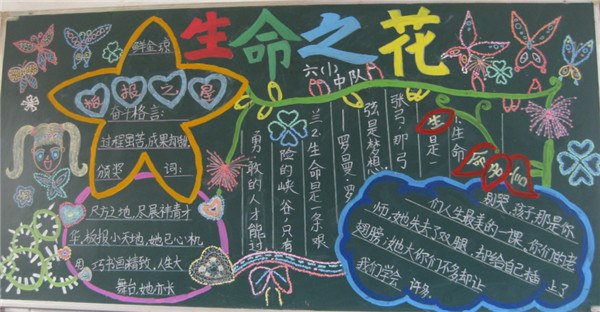 生命之花
六(1)中队
板报之星
奋斗格言:
过程虽苦,成果却甜。
颁奖词:
尺方之地,尽展神青才
华,板报小天地,她已心机
巧书画精致,人生大
舞台,她亦
生命
是一
张弓,那弓
弦是梦想
——罗曼·罗
兰2.生命是一条艰
险的峡谷,只有
勇敢的人才能过
别哭,孩子,那是你
们人生最美的一课。你们的老
师,她失去了双腿,却给自己插上了
翅膀;她大你们不多,却让
我们学会许多。